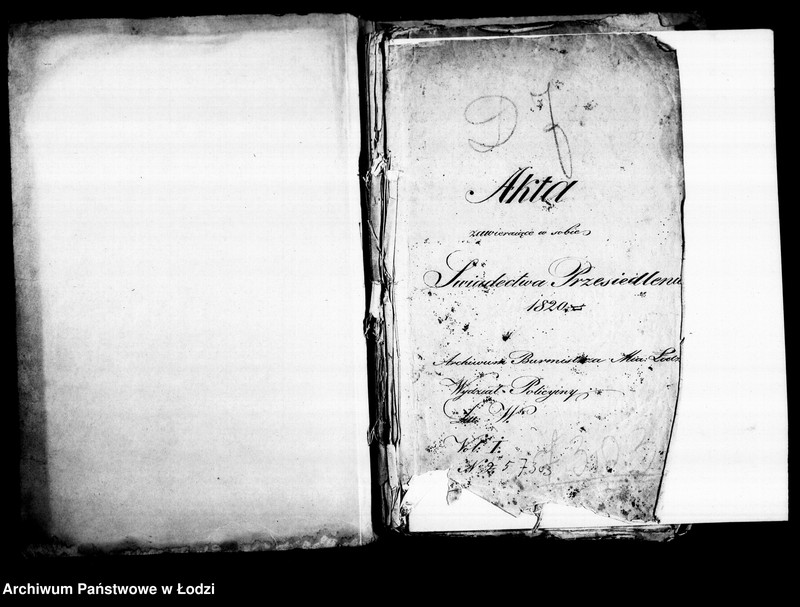 D f
Akta
zawieraiące w sobie
Świadectwa Przesiedlenia
1820
Archiwum Burmistrza Mia: Łodzi
Wydział Policyiny
Litt: W.
Vol: I.
Archiwum Państwowe w Łodzi